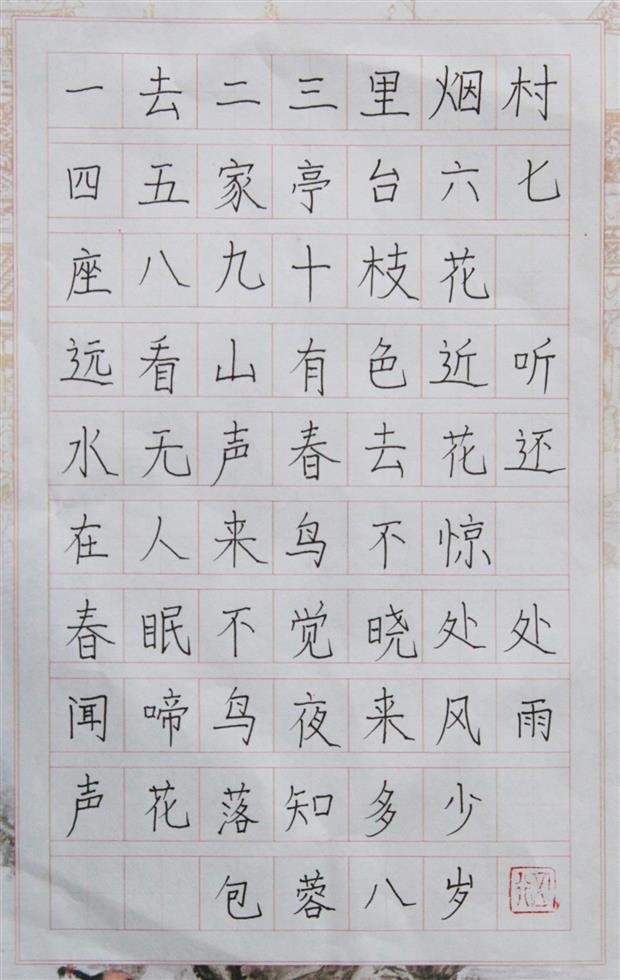 一去二三里烟村
四五家亭台六七
座八九十枝花
远看山有色近听
水无声春去花还
在人来鸟不惊
春眠不觉晓处处
闻啼鸟夜来风雨
声花落知多少
包蓉八岁